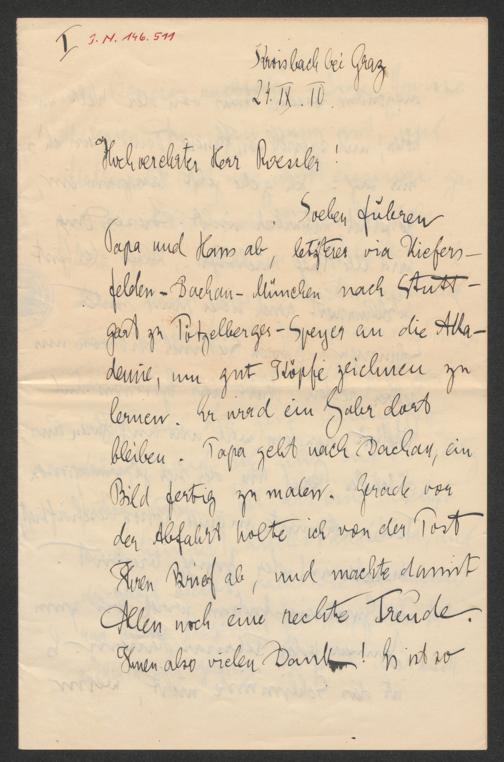 I J.N. 146.511
Kroisbach bei Graz
24. IX. 10.
Hochverehrter Herr Roessler!
Soeben führen
Papa und Hans ab, letzterer via Kiefers-
felden-Dachau-München nach Stutt-
gart zu Pötzelberger-Speyer an die Aka-
demie, um gut Köpfe zeichnen zu
lernen. Er wird ein Jahr dort
bleiben. Papa geht nach Dachau, ein
Bild fertig zu malen. Gerade vor
der Abfahrt holte ich von der Post
Ihren Brief ab, und machte damit
Allen noch eine rechte Freude.
Ihnen also vielen Dank! Es ist so